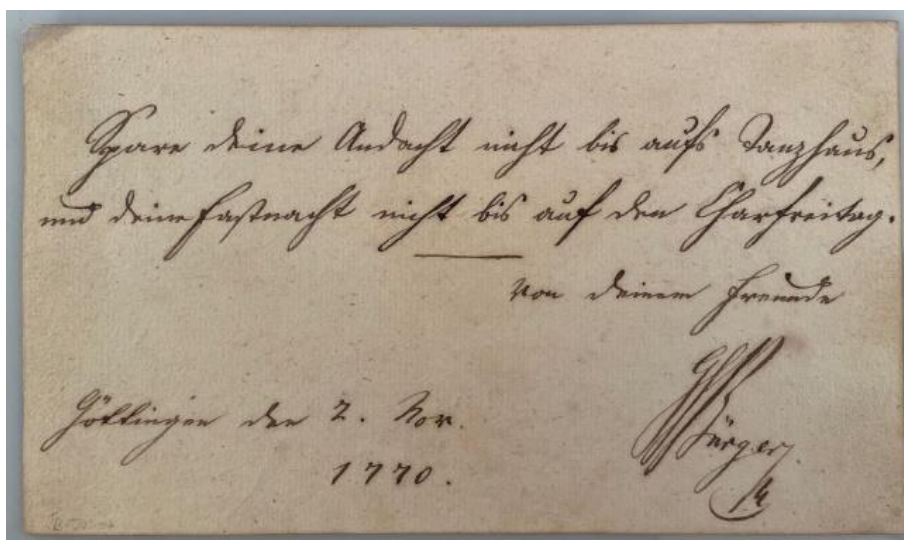 Spare deine Andacht nicht bis aufs Tanzhaus,
und deine Fastnacht nicht bis auf den Charfreitag.
Von deinem Freunde
Göttingen den 2. Nov.
Bürger
1770.